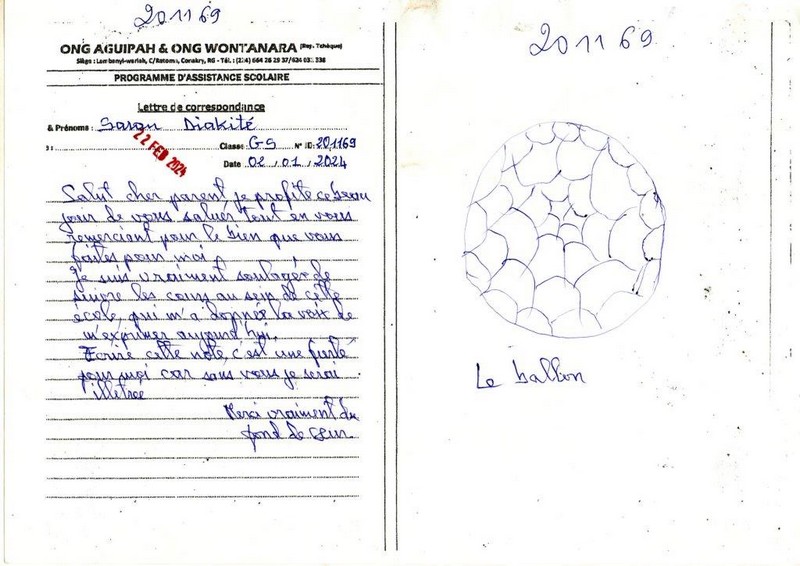 201169
ONG AGUIPAH & ONG WONTANARA (Rep. Tchèque)
Siège : Lambanyi-wariah, C/Ratoma, Conakry, RG - Tél. : (224) 664 26 29 37/624 03 338
PROGRAMME D'ASSISTANCE SCOLAIRE
Lettre de correspondance
& Prénoms : Saran Diakité
22 FEB 2024
Classe : GS N° ID: 201169
Date 02 / 01 / 2024
Salut cher parent, je profite ce beau
jour de vous saluer tout en vous
remerciant pour le bien que vous
faites pour moi,
Je suis vraiment soulagée de
suivre les cours au sein de cette
école, qui m'a donnée la voix de
m'exprimer aujourd'hui.
Ecrire cette note, c'est une
pour moi car sans vous je serai
illetrée
Merci vraiment du
fond de cœur.
201169
Le ballon